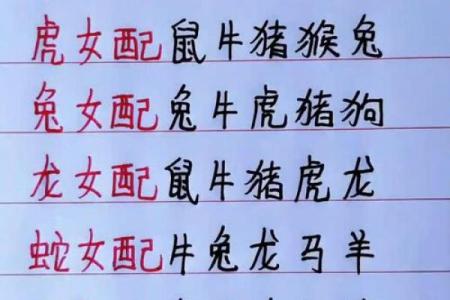 虎女配鼠牛猪猴兔
兔女配兔牛虎猪狗
龙女配鼠牛猪虎龙
蛇女配牛兔龙马羊